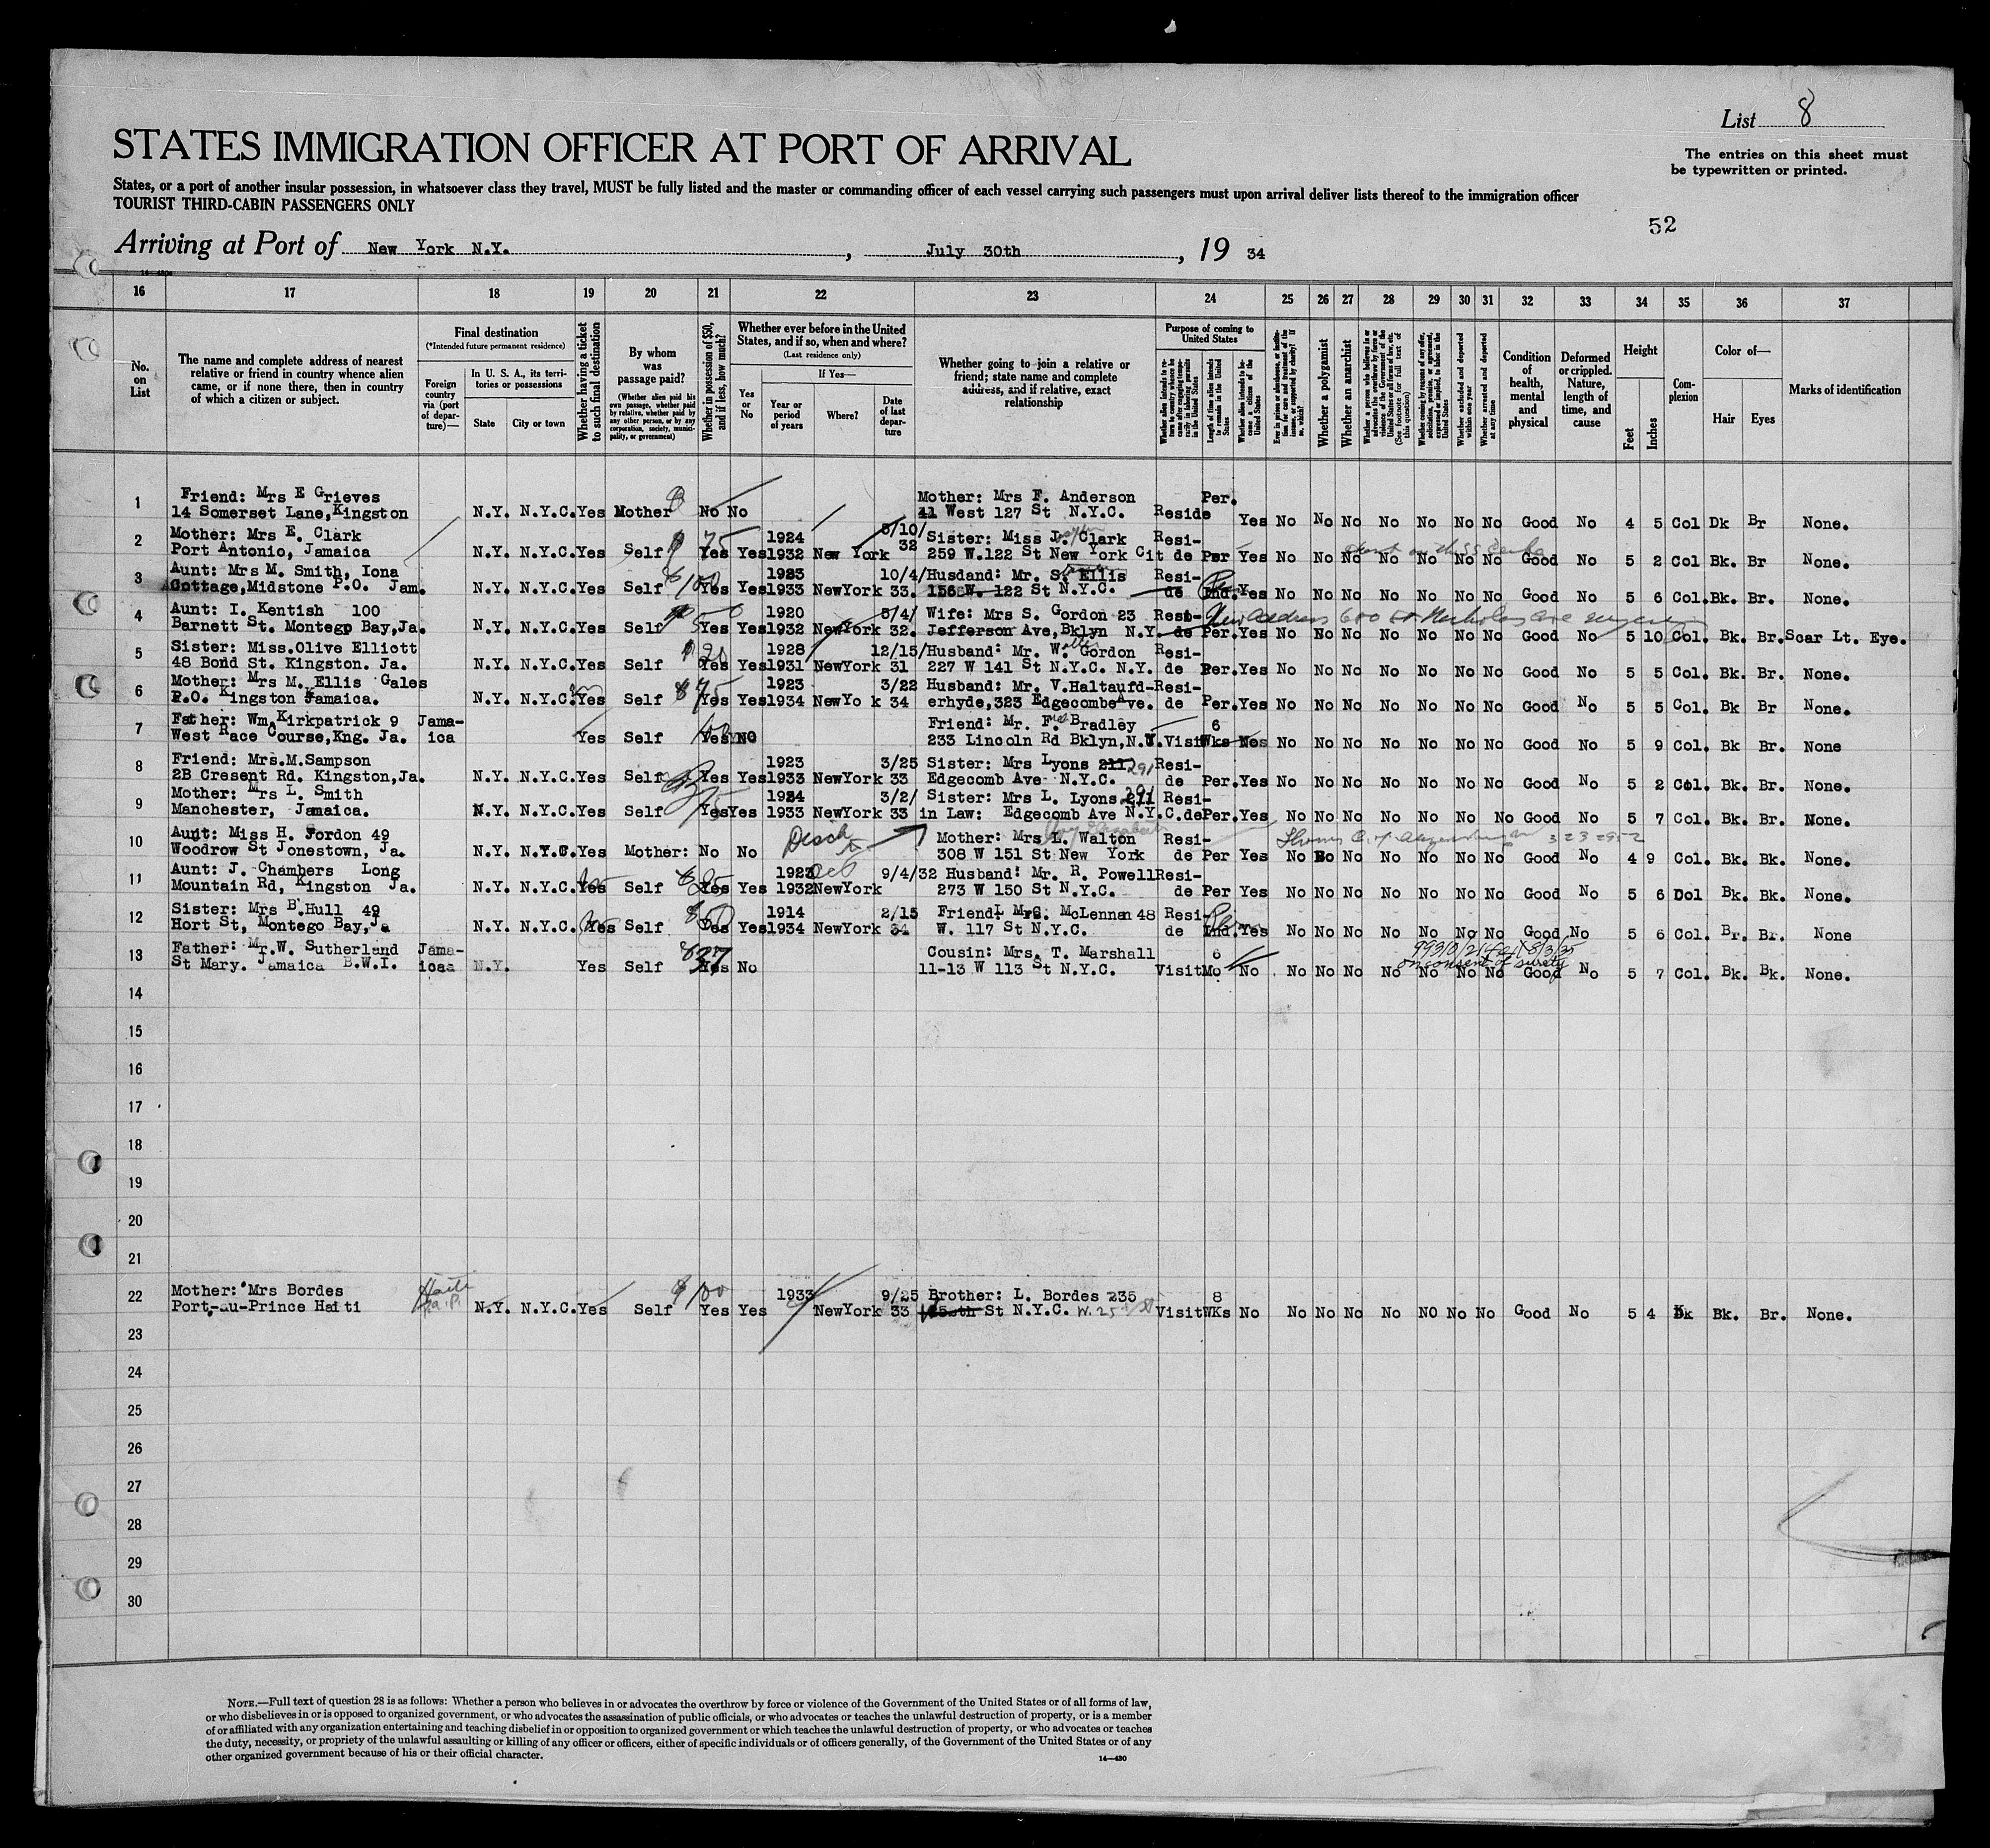 List 8
STATES IMMIGRATION OFFICER AT PORT OF ARRIVAL
The entries on this sheet must
be typewritten or printed.
States, or a port of another insular possession, in whatsoever class they travel, MUST be fully listed and the master or commanding officer of each vessel carrying such passengers must upon arrival deliver lists thereof to the immigration officer
TOURIST THIRD-CABIN PASSENGERS ONLY
52
Arriving at Port of New York N.Y. , July 30th , 19 34
16 17 18 19 20 21 22 23 24 25 26 27 28 29 30 31 32 33 34 35 36 37
No. on List
The name and complete address of nearest relative or friend in country whence alien came, or if none there, then in country of which a citizen or subject.
Final destination
(*Intended future permanent residence)
Foreign country via (port of departure)—
In U. S. A., its territories or possessions
State
City or town
Whether having a ticket to such final destination
By whom was passage paid?
(Whether alien paid his own passage, whether paid by relative, whether paid by any other person, or by any corporation, society, municipality, or government)
Whether in possession of $50, and if less, how much?
Whether ever before in the United States, and if so, when and where?
(Last residence only)
Yes or No
If Yes—
Year or period of years
Where?
Date of last departure
Whether going to join a relative or friend; state name and complete address, and if relative, exact relationship
Purpose of coming to United States
Whether alien intends to return to country whence he came after engaging temporarily in laboring pursuits in the United States
Length of time alien intends to remain in the United States
Whether alien intends to become a citizen of the United States
Ever in prison or almshouse, or institution for care and treatment of the insane, or supported by charity? If so, which?
Whether a polygamist
Whether an anarchist
Whether a person who believes in or advocates the overthrow by force or violence of the Government of the United States or all forms of law, etc. (See footnote for full text of this question)
Whether coming by reason of any offer, solicitation, promise, or agreement, expressed or implied, to labor in the United States
Whether excluded and deported within one year
Whether arrested and deported at any time
Condition of health, mental and physical
Deformed or crippled. Nature, length of time, and cause
Height
Feet
Inches
Complexion
Color of—
Hair Eyes
Marks of identification
1 Friend: Mrs E Grieves Mother: Mrs F. Anderson Per.
14 Somerset Lane, Kingston N.Y. N.Y.C. Yes Mother No No 41 West 127 St N.Y.C. Reside Yes No No No No No No No Good No 4 5 Col Dk Br None.
2 Mother: Mrs E. Clark 75 1924 5/10/ Sister: Miss J. Clark Resi-
Port Antonio, Jamaica N.Y. N.Y.C. Yes Self Yes Yes 1932 New York 32 259 W.122 St New York Cit de Per Yes No No No No No No No Good No 5 2 Col Bk. Br None.
3 Aunt: Mrs M. Smith, Iona $100 1923 10/4/ Husdand: Mr. S. Ellis Resi-
Cottage, Midstone P.O. Jam. N.Y. N.Y.C. Yes Self Yes Yes 1933 NewYork 33. 156 W. 122 St N.Y.C. de Ind. Yes No No No No No No No Good No 5 6 Col. Bk. Br. None.
4 Aunt: I. Kentish 100 1920 5/4/ Wife: Mrs S. Gordon 23 Resi- New address 680 St Nicholas Ave
Barnett St. Montego Bay, Ja. N.Y. N.Y.C. Yes Self Yes Yes 1932 NewYork 32. Jefferson Ave, Bklyn N.Y. de Per. Yes No No No No No No No Good No 5 10 Col. Bk. Br. Scar Lt. Eye.
5 Sister: Miss. Olive Elliott 1928 12/15/ Husband: Mr. W. Gordon Resi-
48 Bond St. Kingston. Ja. N.Y. N.Y.C. Yes Self Yes Yes 1931 NewYork 31 227 W 141 St N.Y.C. N.Y. de Per. Yes No No No No No No No Good No 5 5 Col. Bk. Br. None.
6 Mother: Mrs M. Ellis Gales $75 1923 3/22 Husband: Mr. V.Haltaufd- Resi-
P.O. Kingston Jamaica. N.Y. N.Y.C. Yes Self Yes Yes 1934 NewYo k 34 erhyde, 323 Edgecombe Ave. de Per. Yes No No No No No No No Good No 5 5 Col. Bk Br None.
7 Father: Wm. Kirkpatrick 9 Jama- Friend: Mr. F. Bradley 6
West Race Course, Kng. Ja. ica Yes Self Yes NO 233 Lincoln Rd Bklyn, N.Y. Visit Wks No No No No No No No No Good No 5 9 Col. Bk Br. None
8 Friend: Mrs.M.Sampson 1923 3/25 Sister: Mrs Lyons 211 291 Resi-
2B Cresent Rd. Kingston, Ja. N.Y. N.Y.C. Yes Self Yes Yes 1933 NewYork 33 Edgecomb Ave N.Y.C. de Per. Yes No No No No No No No Good No 5 2 Col. Bk. Br. None.
9 Mother: Mrs L. Smith 1924 3/2/ Sister: Mrs L. Lyons 211 291 Resi-
Manchester, Jamaica. N.Y. N.Y.C. Yes Self Yes Yes 1933 NewYork 33 in Law: Edgecomb Ave N.Y.C. de Per. Yes No No No No No No No Good No 5 7 Col. Bk. Br. None.
10 Aunt: Miss H. Jordon 49 Mother: Mrs L. Walton Resi-
Woodrow St Jonestown, Ja. N.Y. N.Y.C. Yes Mother: No No 308 W 151 St New York de Per Yes No No No No No No No Good No 4 9 Col. Bk. Bk. None.
11 Aunt: J. Chambers Long 1923 Oct 9/4/32 Husband: Mr. R. Powell Resi-
Mountain Rd, Kingston Ja. N.Y. N.Y.C. Yes Self Yes Yes 1932 NewYork 273 W 150 St N.Y.C. de Per Yes No No No No No No No Good No 5 6 Dol Bk. Bk. None.
12 Sister: Mrs B. Hull 49 $50 1914 2/15 Friend: Mrs. McLennan 48 Resi-
Hort St, Montego Bay, Ja N.Y. N.Y.C. Yes Self Yes Yes 1934 NewYork 34 W. 117 St N.Y.C. de Ind. Yes No No No No No No No Good No 5 6 Col. Br. Br. None
13 Father: Mr.W. Sutherland Jama- $37 Cousin: Mrs. T. Marshall 6
St Mary. Jamaica B.W.I. icaa N.Y. Yes Self Yes No 11-13 W 113 St N.Y.C. Visit Mo No No No No No No No No Good No 5 7 Col. Bk. Bk. None.
on consent of surety
14
15
16
17
18
19
20
21
22 Mother: Mrs Bordes Haiti $100 1933 9/25 Brother: L. Bordes 235 8
Port-au-Prince Haiti N.Y. N.Y.C. Yes Self Yes Yes NewYork 33 125th St N.Y.C. W. 25 St Visit WKs No No No No No NO No No Good No 5 4 Bk Bk. Br. None.
23
24
25
26
27
28
29
30
NOTE.—Full text of question 28 is as follows: Whether a person who believes in or advocates the overthrow by force or violence of the Government of the United States or of all forms of law,
or who disbelieves in or is opposed to organized government, or who advocates the assassination of public officials, or who advocates or teaches the unlawful destruction of property, or is a member
of or affiliated with any organization entertaining and teaching disbelief in or opposition to organized government or which teaches the unlawful destruction of property, or who advocates or teaches
the duty, necessity, or propriety of the unlawful assaulting or killing of any officer or officers, either of specific individuals or of officers generally, of the Government of the United States or of any
other organized government because of his or their official character.
14—430